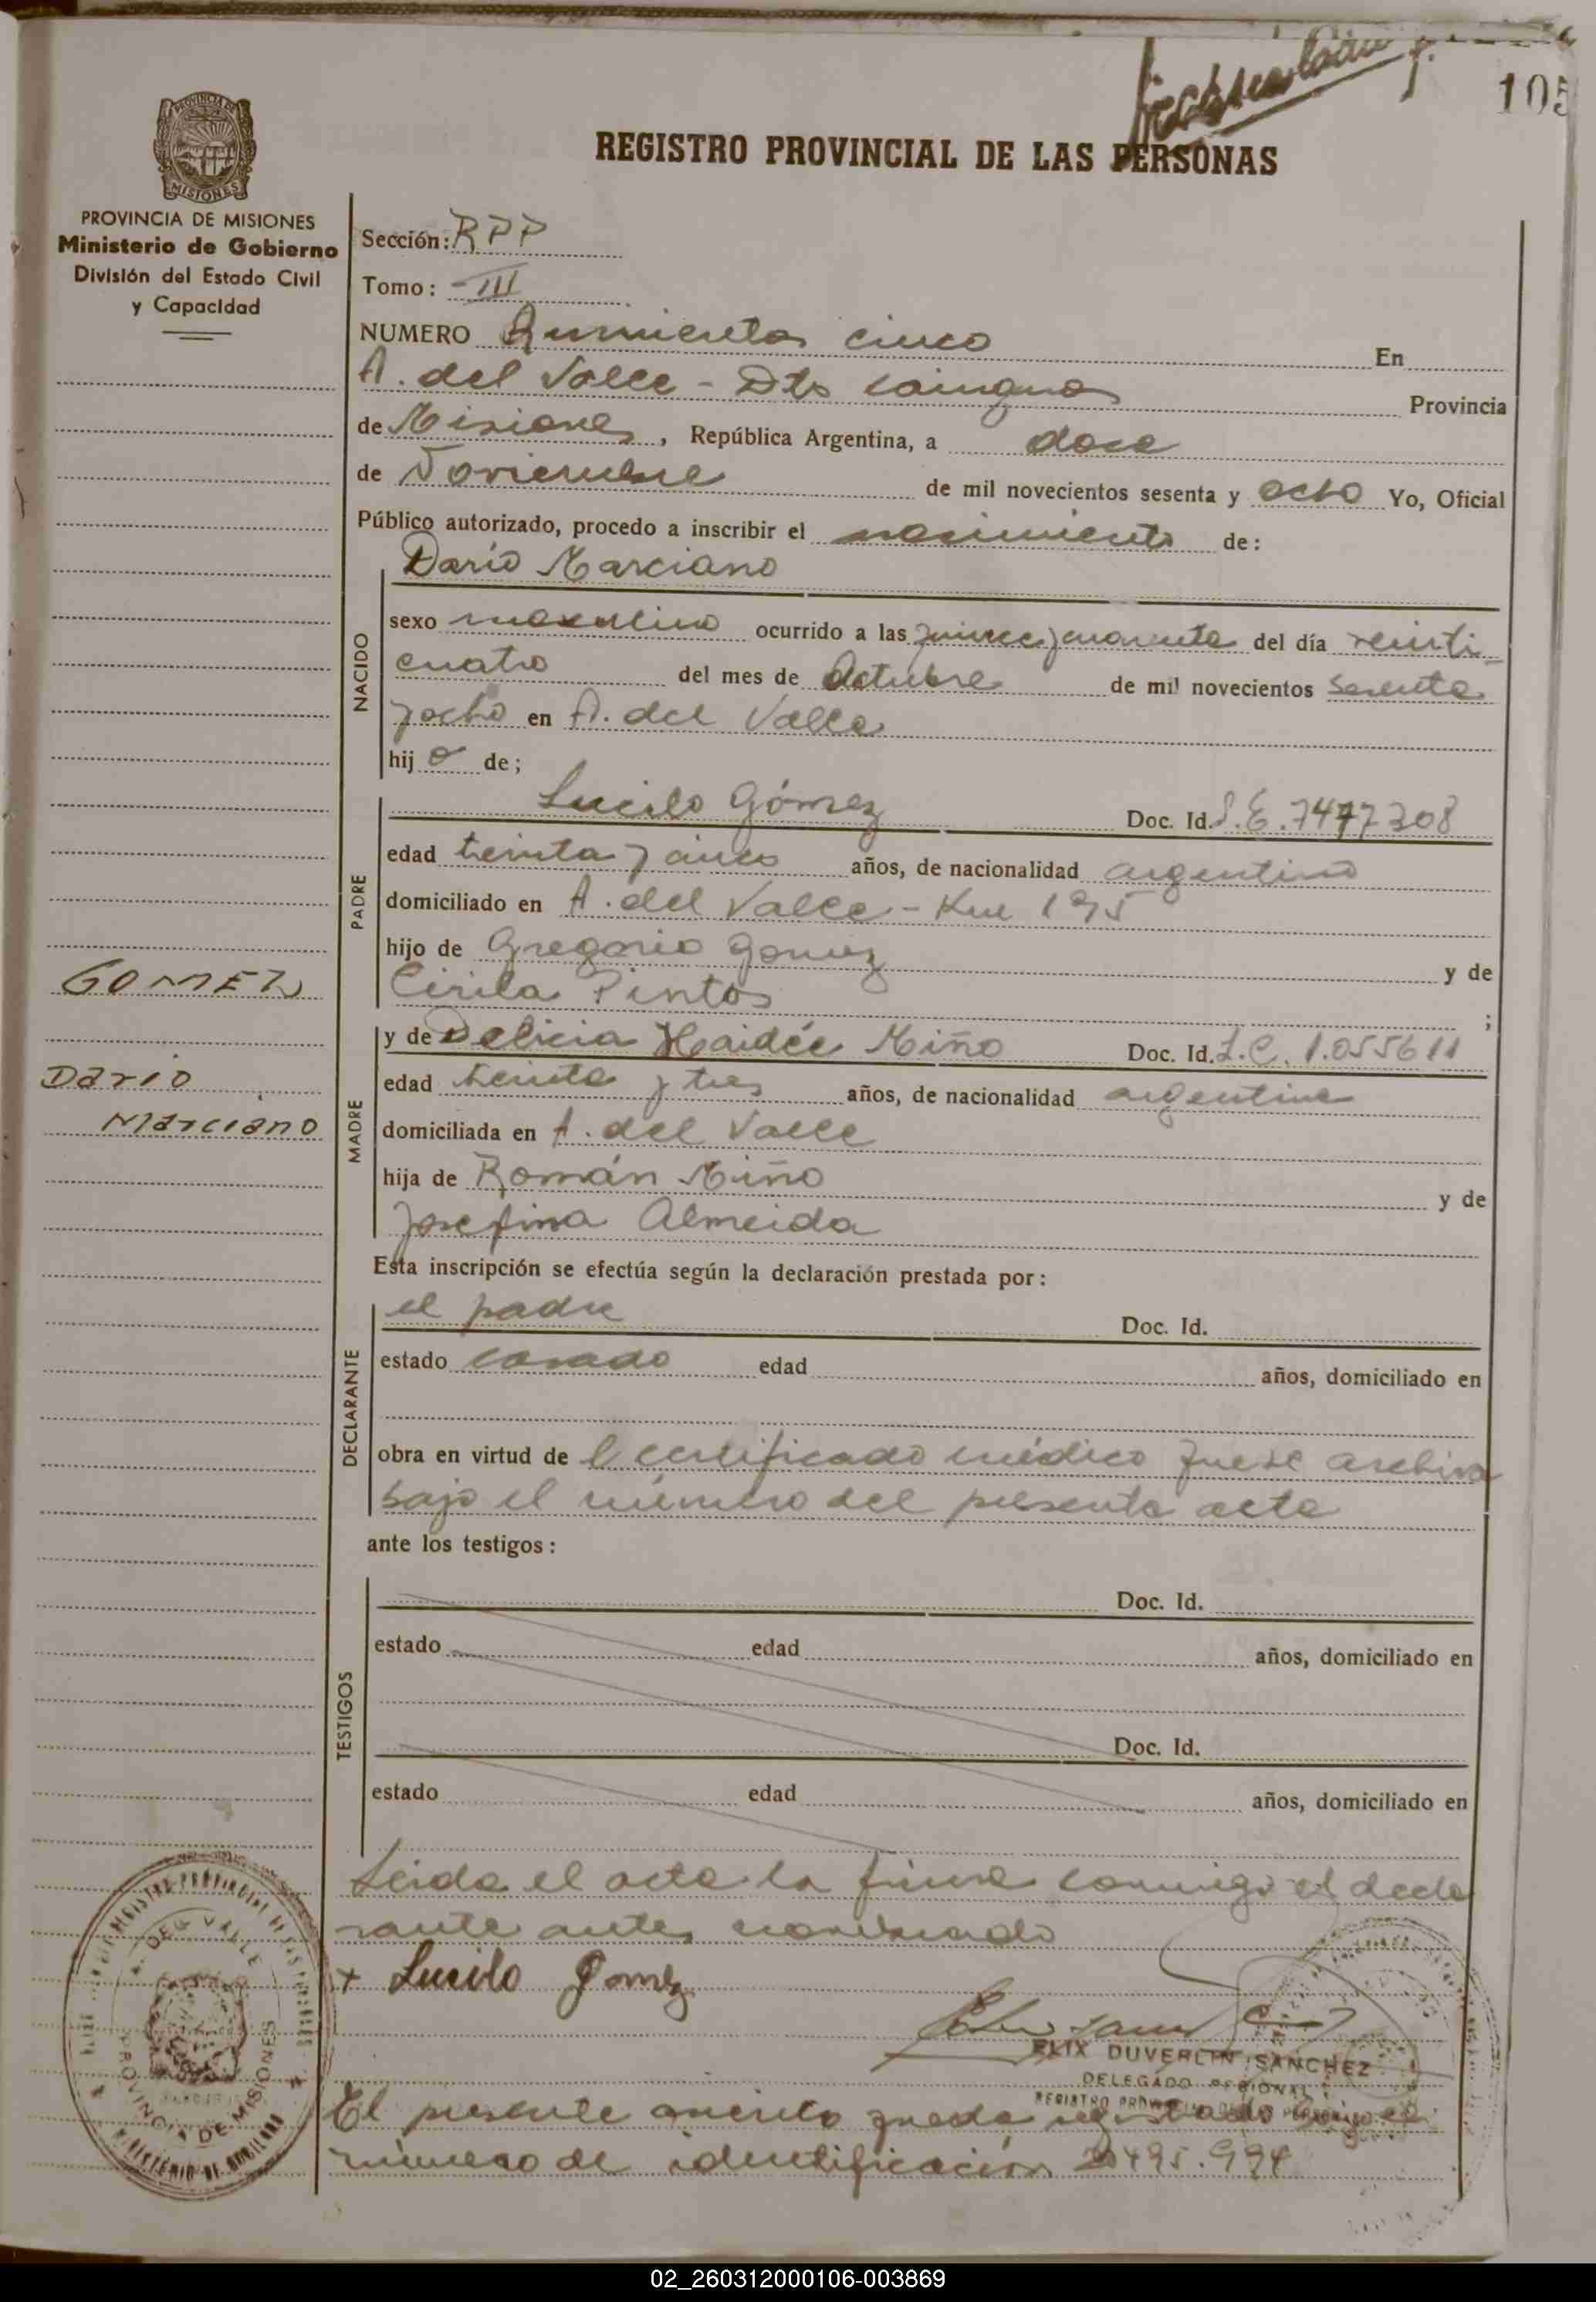 105
REGISTRO PROVINCIAL DE LAS PERSONAS
PROVINCIA DE
MISIONES
PROVINCIA DE MISIONES
Ministerio de Gobierno
División del Estado Civil
y Capacidad
Sección: RPP
Tomo: III
NUMERO Quinientos cinco En
A. del Valle - Dto Cainguas Provincia
de Misiones, República Argentina, a doce
de Noviembre de mil novecientos sesenta y ocho Yo, Oficial
Público autorizado, procedo a inscribir el nacimiento de:
Darío Marciano
NACIDO
sexo masculino ocurrido a las quince y cuarenta del día veinti-
cuatro del mes de Octubre de mil novecientos sesenta
y ocho en A. del Valle
hijo de;
PADRE
Lucilo Gómez Doc. Id. L.E. 7477308
edad treinta y cinco años, de nacionalidad argentino
domiciliado en A. del Valle - Km 195
hijo de Gregorio Gomez y de
Cirila Pintos ;
GOMEZ
Dario
Marciano
MADRE
y de Delicia Haidée Miño Doc. Id. L.C. 1.055611
edad treinta y tres años, de nacionalidad argentina
domiciliada en A. del Valle
hija de Román Miño y de
Josefina Almeida
Esta inscripción se efectúa según la declaración prestada por:
DECLARANTE
el padre Doc. Id.
estado casado edad años, domiciliado en
obra en virtud de l certificado médico que se archiva
bajo el número del presente acta
ante los testigos:
TESTIGOS
Doc. Id.
estado edad años, domiciliado en
Doc. Id.
estado edad años, domiciliado en
Leida el acta la firma conmigo el decla
rante antes nombrado
+ Lucilo Gomez
A. DEL VALLE
PROVINCIA DE MISIONES
MINISTERIO DE GOBIERNO
FELIX DUVERLIN SANCHEZ
DELEGADO REGIONAL
El presente queda registrado bajo el
número de identificación 20495.994
02_260312000106-003869